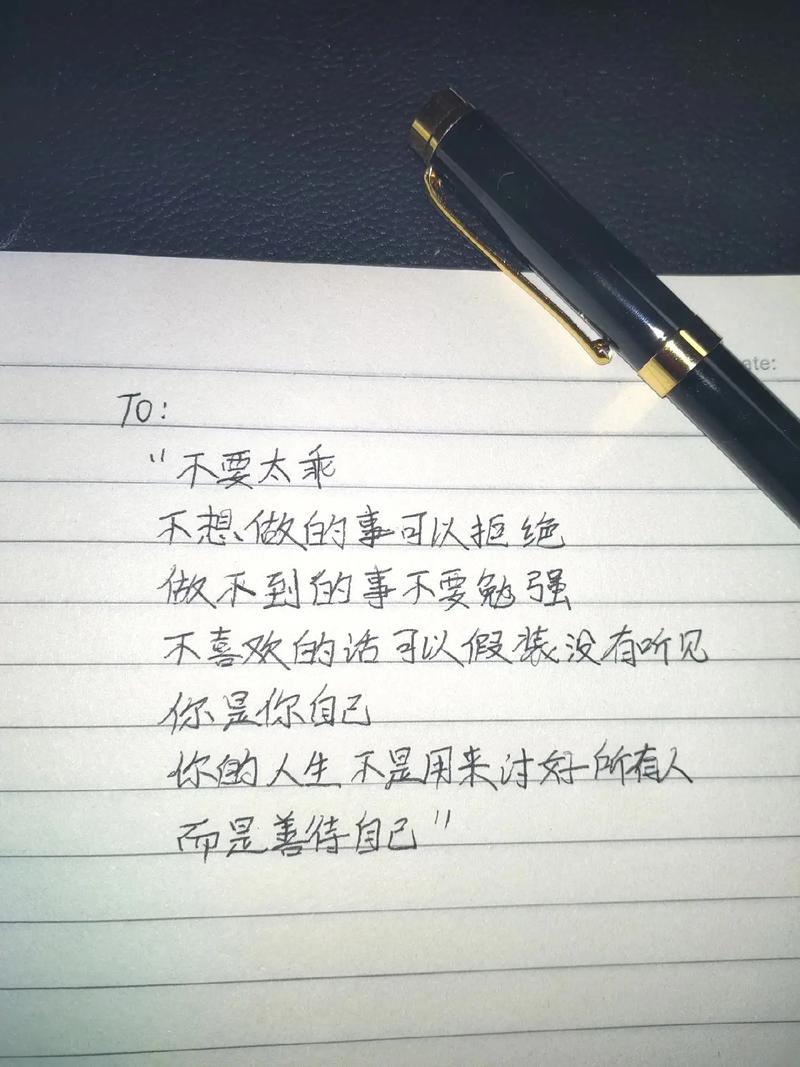 ate:
TO:
"不要太乖
不想做的事可以拒绝
做不到的事不要勉强
不喜欢的话可以假装没有听见
你是你自己
你的人生不是用来讨好所有人
而是善待自己"